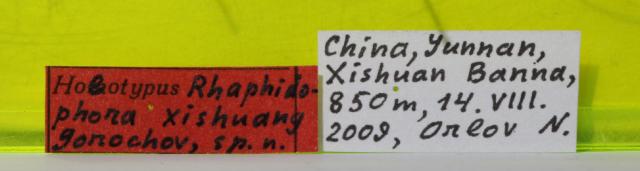 Holotypus Rhaphido-
phora xishuang
Gorochov, sp. n.
China, Yunnan,
Xishuan Banna,
850m, 14. VIII.
2009, Orlov N.